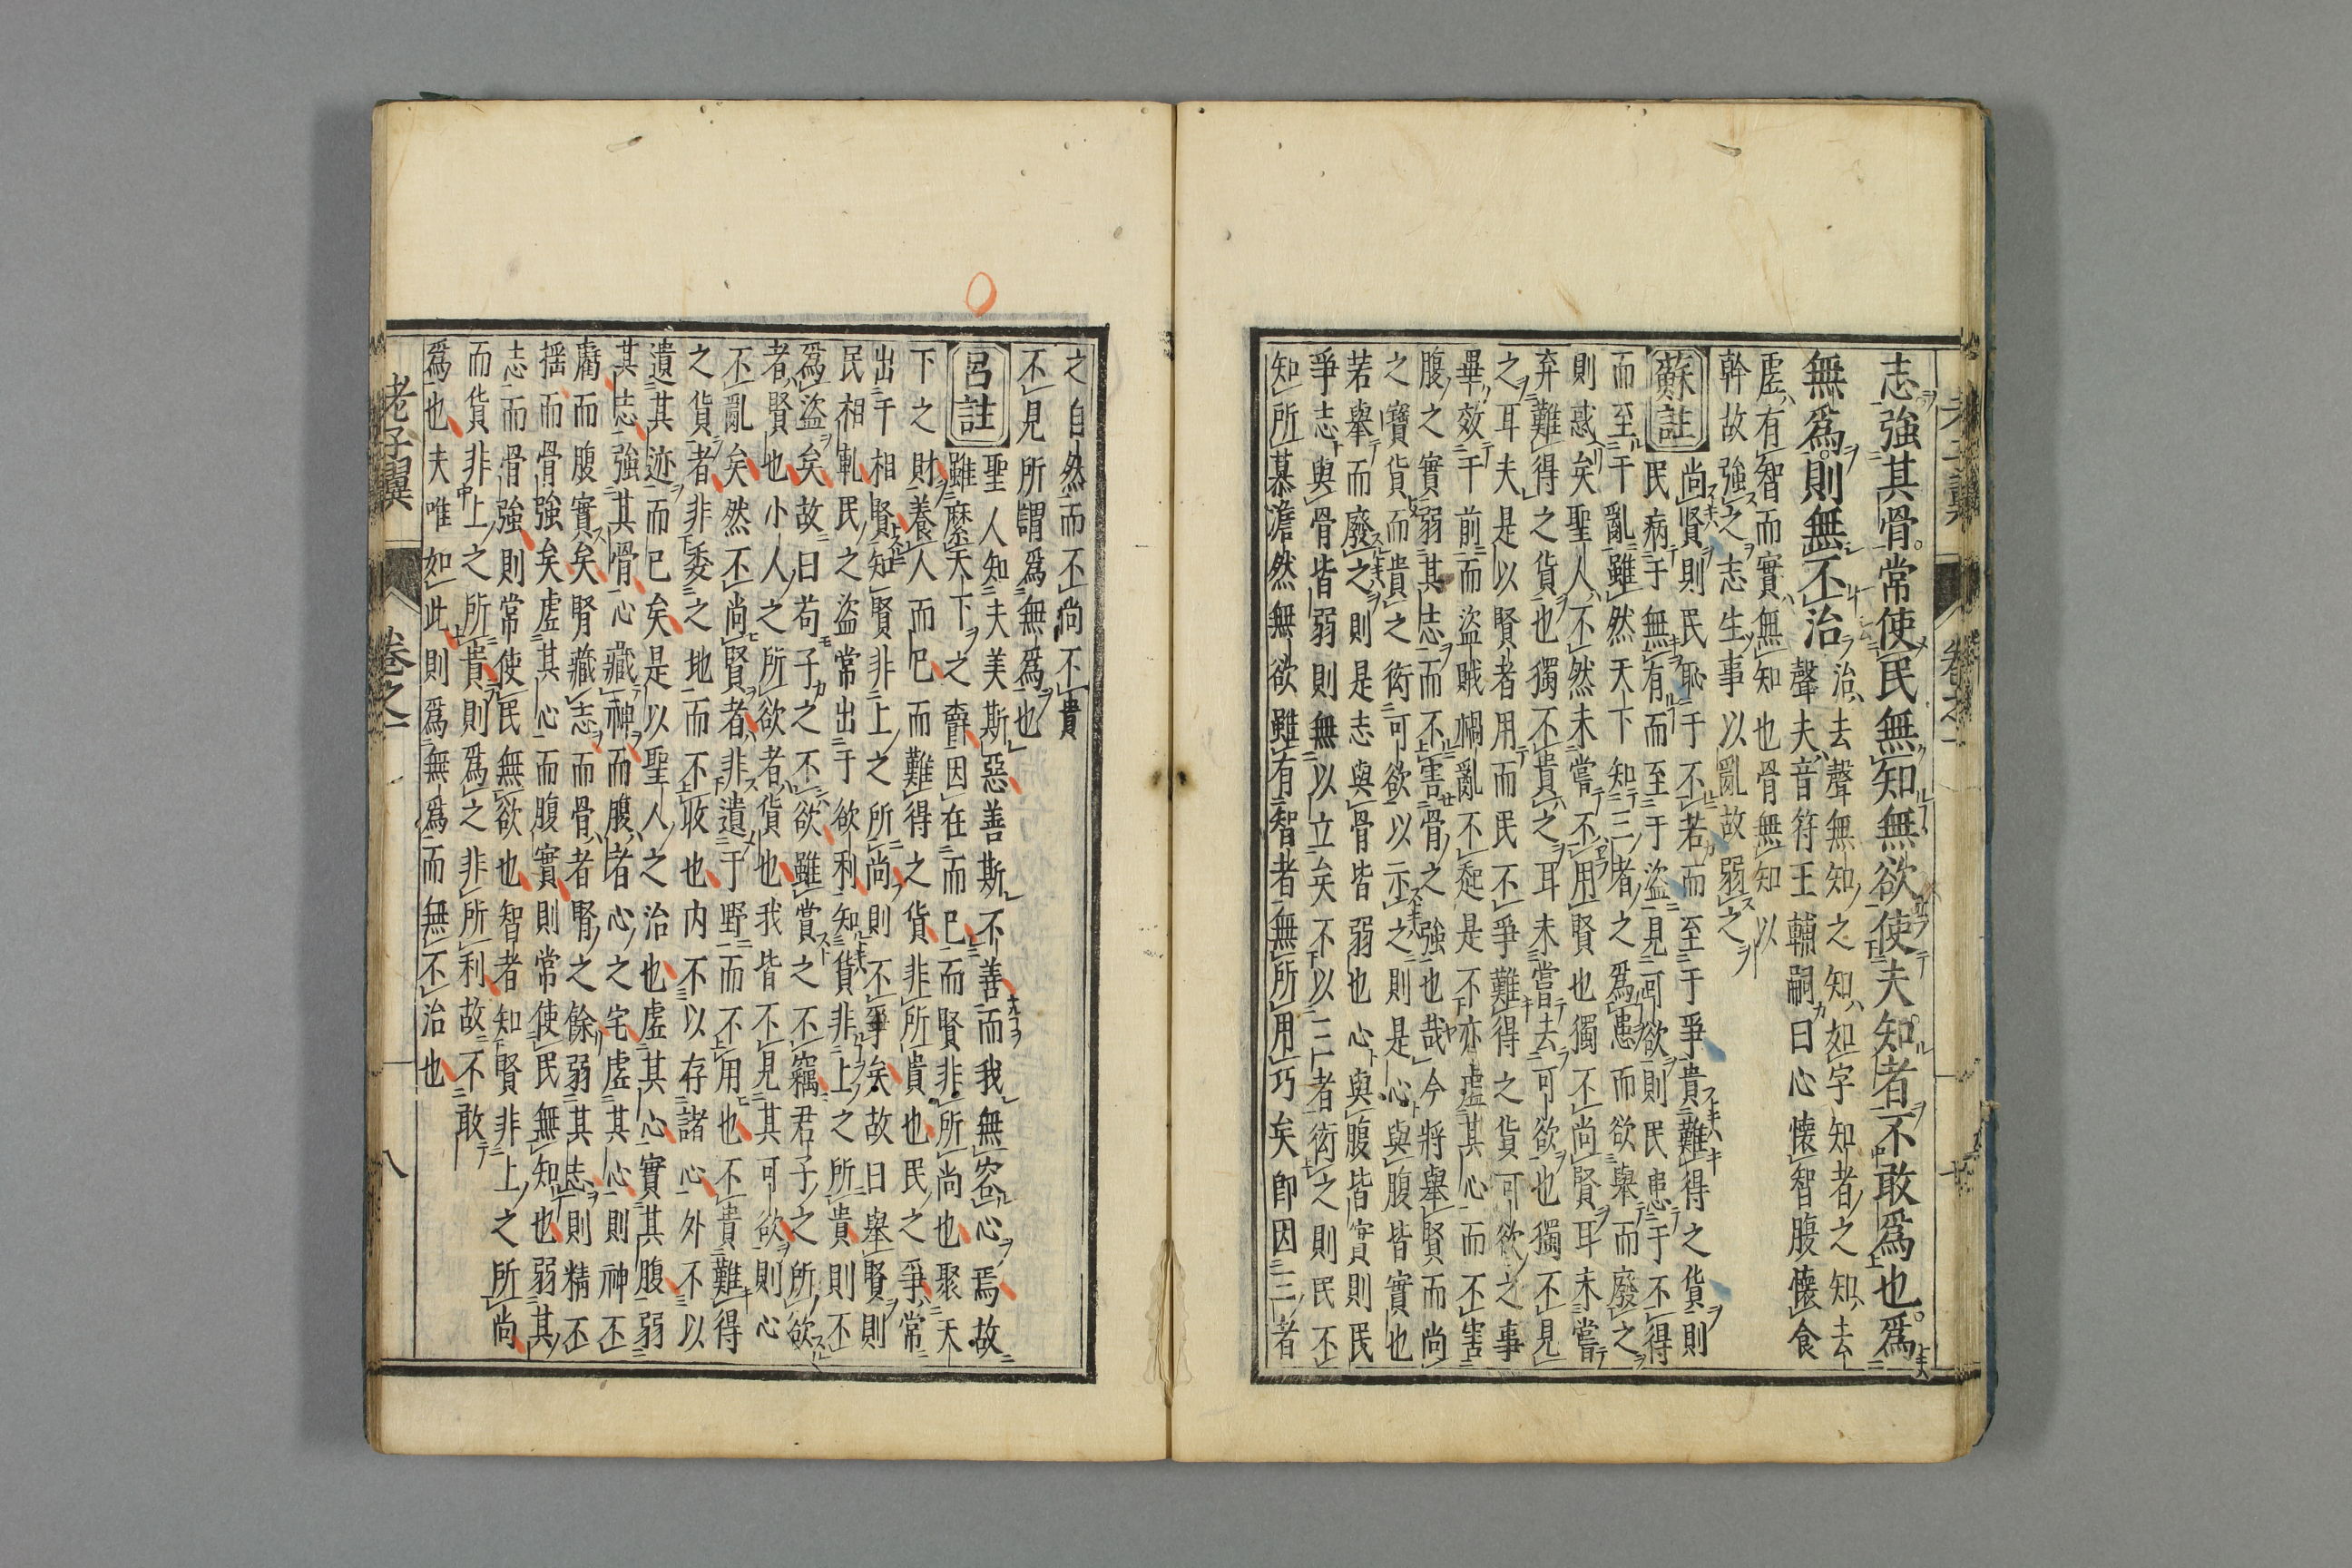 志強其骨。常使民無知無欲使夫知者不敢爲也。爲
無爲。則無不治
治去聲無知之知如字知者之知去
聲夫音符王輔嗣曰心懷智腹懷食
虛有智而實無知也骨無知以
幹故強之志生事以亂故弱之
蘇註
尚賢則民恥于不若而至于爭貴難得之貨則
民病于無有而至于盜見可欲則民患于不得
而至于亂雖然天下知三者之爲患而欲舉而廢之
則惑矣聖人不然未嘗不用賢也獨不尚賢耳未嘗
弃難得之貨也獨不貴之耳未嘗去可欲也獨不見
之耳夫是以賢者用而民不爭難得之貨可欲之事
畢效于前而盜賊禍亂不起是不亦虛其心而不害
腹之實弱其志而不害骨之強也哉今將舉賢而尚
之寶貨而貴之衒可欲以示之則是心與腹皆實也
若舉而廢之則是志與骨皆弱也心與腹皆實則民
爭志與骨皆弱則無以立矣不以三者衒之則民不
知所慕澹然無欲雖有智者無所用巧矣卽因三者
之自然而不尚不貴
不見所謂爲無爲也
呂註
聖人知夫美斯惡善斯不善而我無容心焉故
雖靡天下之爵因在而已而賢非所尚也聚天
下之財養人而已而難得之貨非所貴也民之爭常
出于相賢知賢非上之所尚則不爭矣故曰舉賢則
民相軋民之盜常出于欲利知貨非上之所貴則不
爲盜矣故曰苟子之不欲雖賞之不竊君子之所欲
者賢也小人之所欲者貨也我皆不見其可欲則心
不亂矣然不尚賢者非遺于野而不用也不貴難得
之貨者非委之地而不收也內不以存諸心外不以
遺其迹而已矣是以聖人之治也虛其心實其腹弱
其志強其骨心藏神而腹者心之宅虛其心則神不
虧而腹實矣腎藏志而骨者腎之餘弱其志則精不
搖而骨強矣虛其心而腹實則常使民無知也弱其
志而骨強則常使民無欲也智者知賢非上之所尚
而貨非上之所貴則爲之非所利故不敢
爲也夫唯如此則爲無爲而無不治也
老子翼
卷之一
八